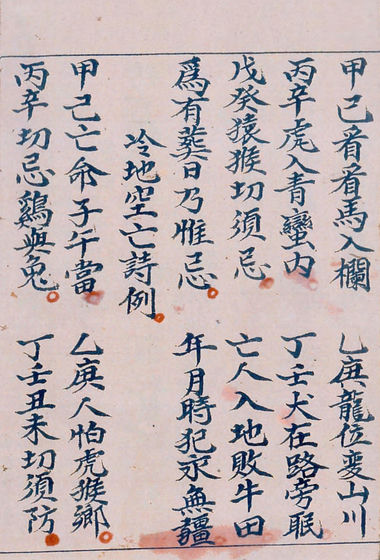 甲己看看馬入欄 乙庚龍位變山川
丙辛虎入青蠻内 丁壬犬在路旁眠
戊癸猿猴切須忌 亡人入地敗牛田
爲有葬日乃惟忌 年月時犯永無疆
冷地空亡詩例
甲己亡命子午當 乙庚人怕虎猴鄉
丙辛切忌鷄與兔 丁壬丑未切須防